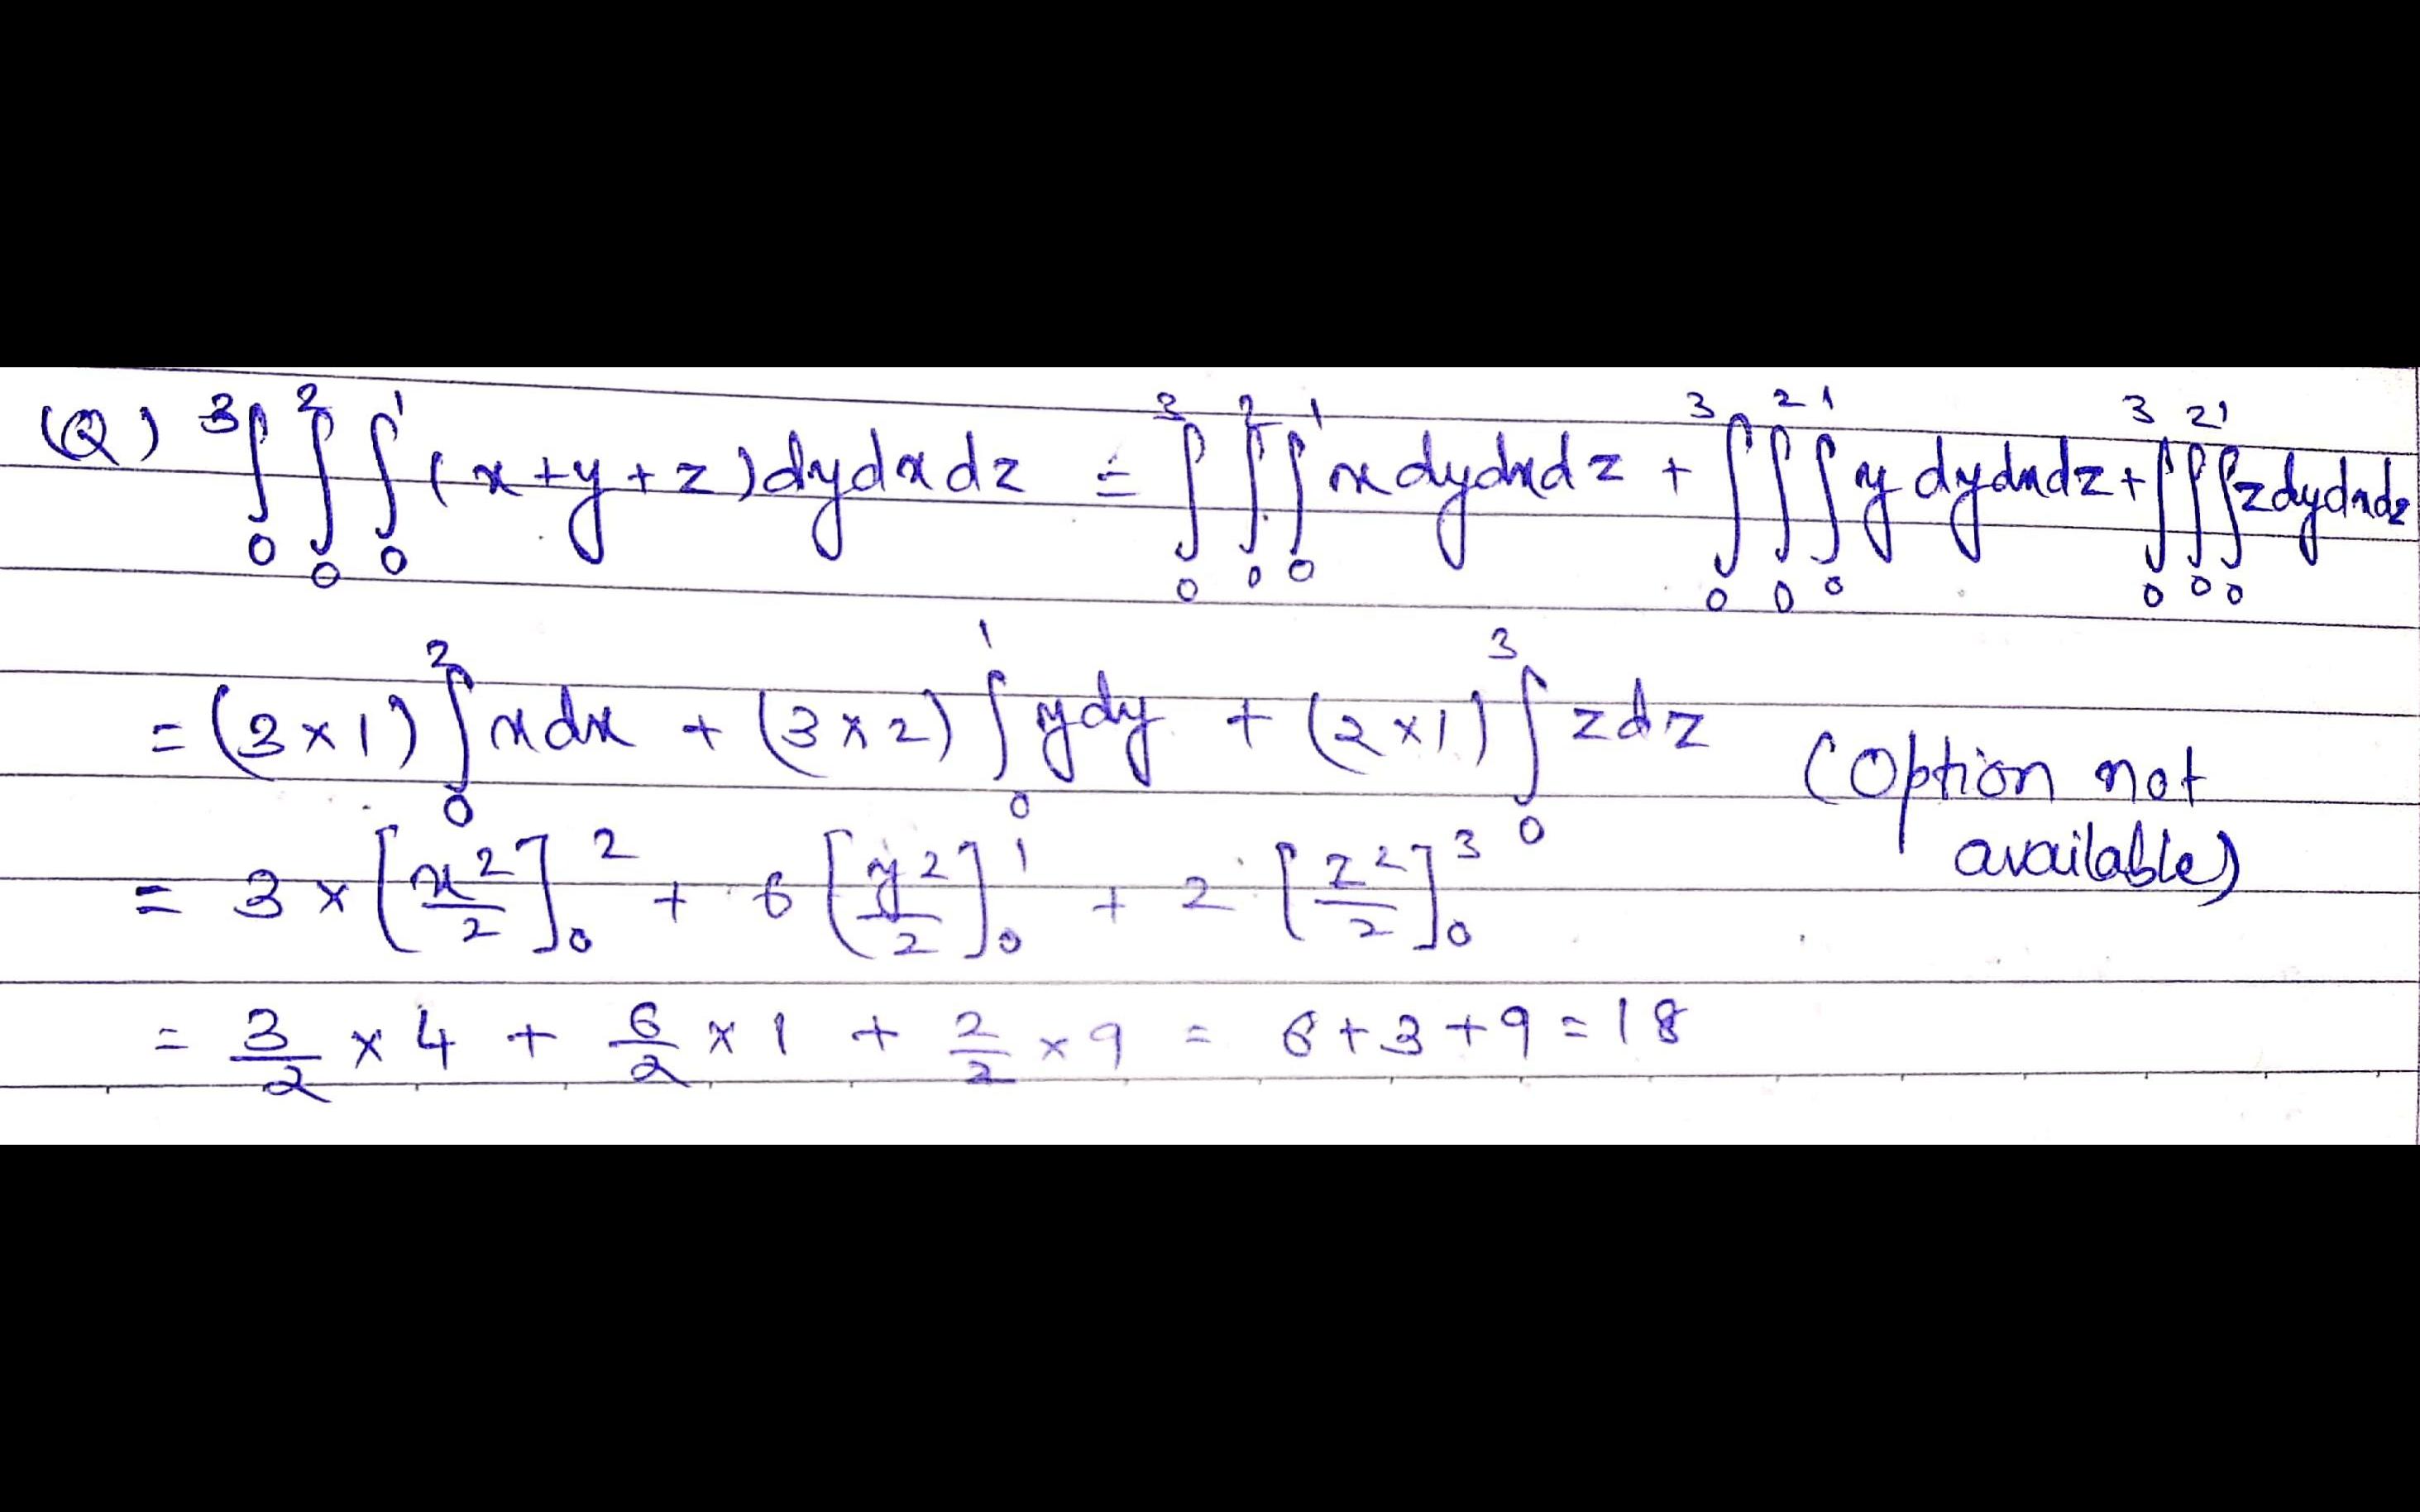 (Q) ∫₀³ ∫₀² ∫₀¹ (x+y+z) dy dx dz = ∫₀³ ∫₀² ∫₀¹ x dy dx dz + ∫₀³ ∫₀² ∫₀¹ y dy dx dz + ∫₀³ ∫₀² ∫₀¹ z dy dx dz
= (3×1) ∫₀² x dx + (3×2) ∫₀¹ y dy + (2×1) ∫₀³ z dz (Option not available)
= 3 × [x²/2]₀² + 6 [y²/2]₀¹ + 2 [z²/2]₀³
= 3/2 × 4 + 6/2 × 1 + 2/2 × 9 = 6+3+9 = 18